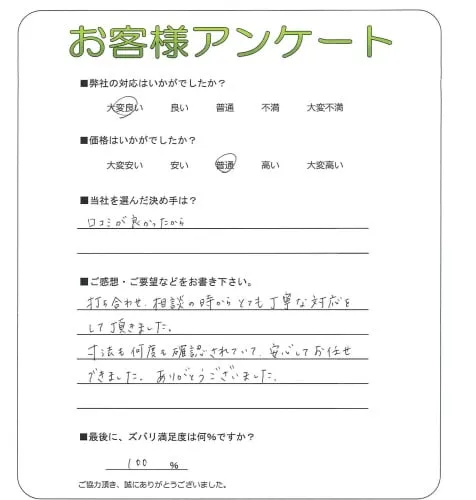 お客様アンケート
■弊社の対応はいかがでしたか？
大変良い 良い 普通 不満 大変不満
■価格はいかがでしたか？
大変安い 安い 普通 高い 大変高い
■当社を選んだ決め手は？
口コミが良かったから
■ご感想・ご要望などをお書き下さい。
打ち合わせ、相談の時からとても丁寧な対応を
して頂きました。
寸法も何度も確認されていて、安心してお任せ
できました。ありがとうございました。
■最後に、ズバリ満足度は何%ですか？
100 %
ご協力頂き、誠にありがとうございました。